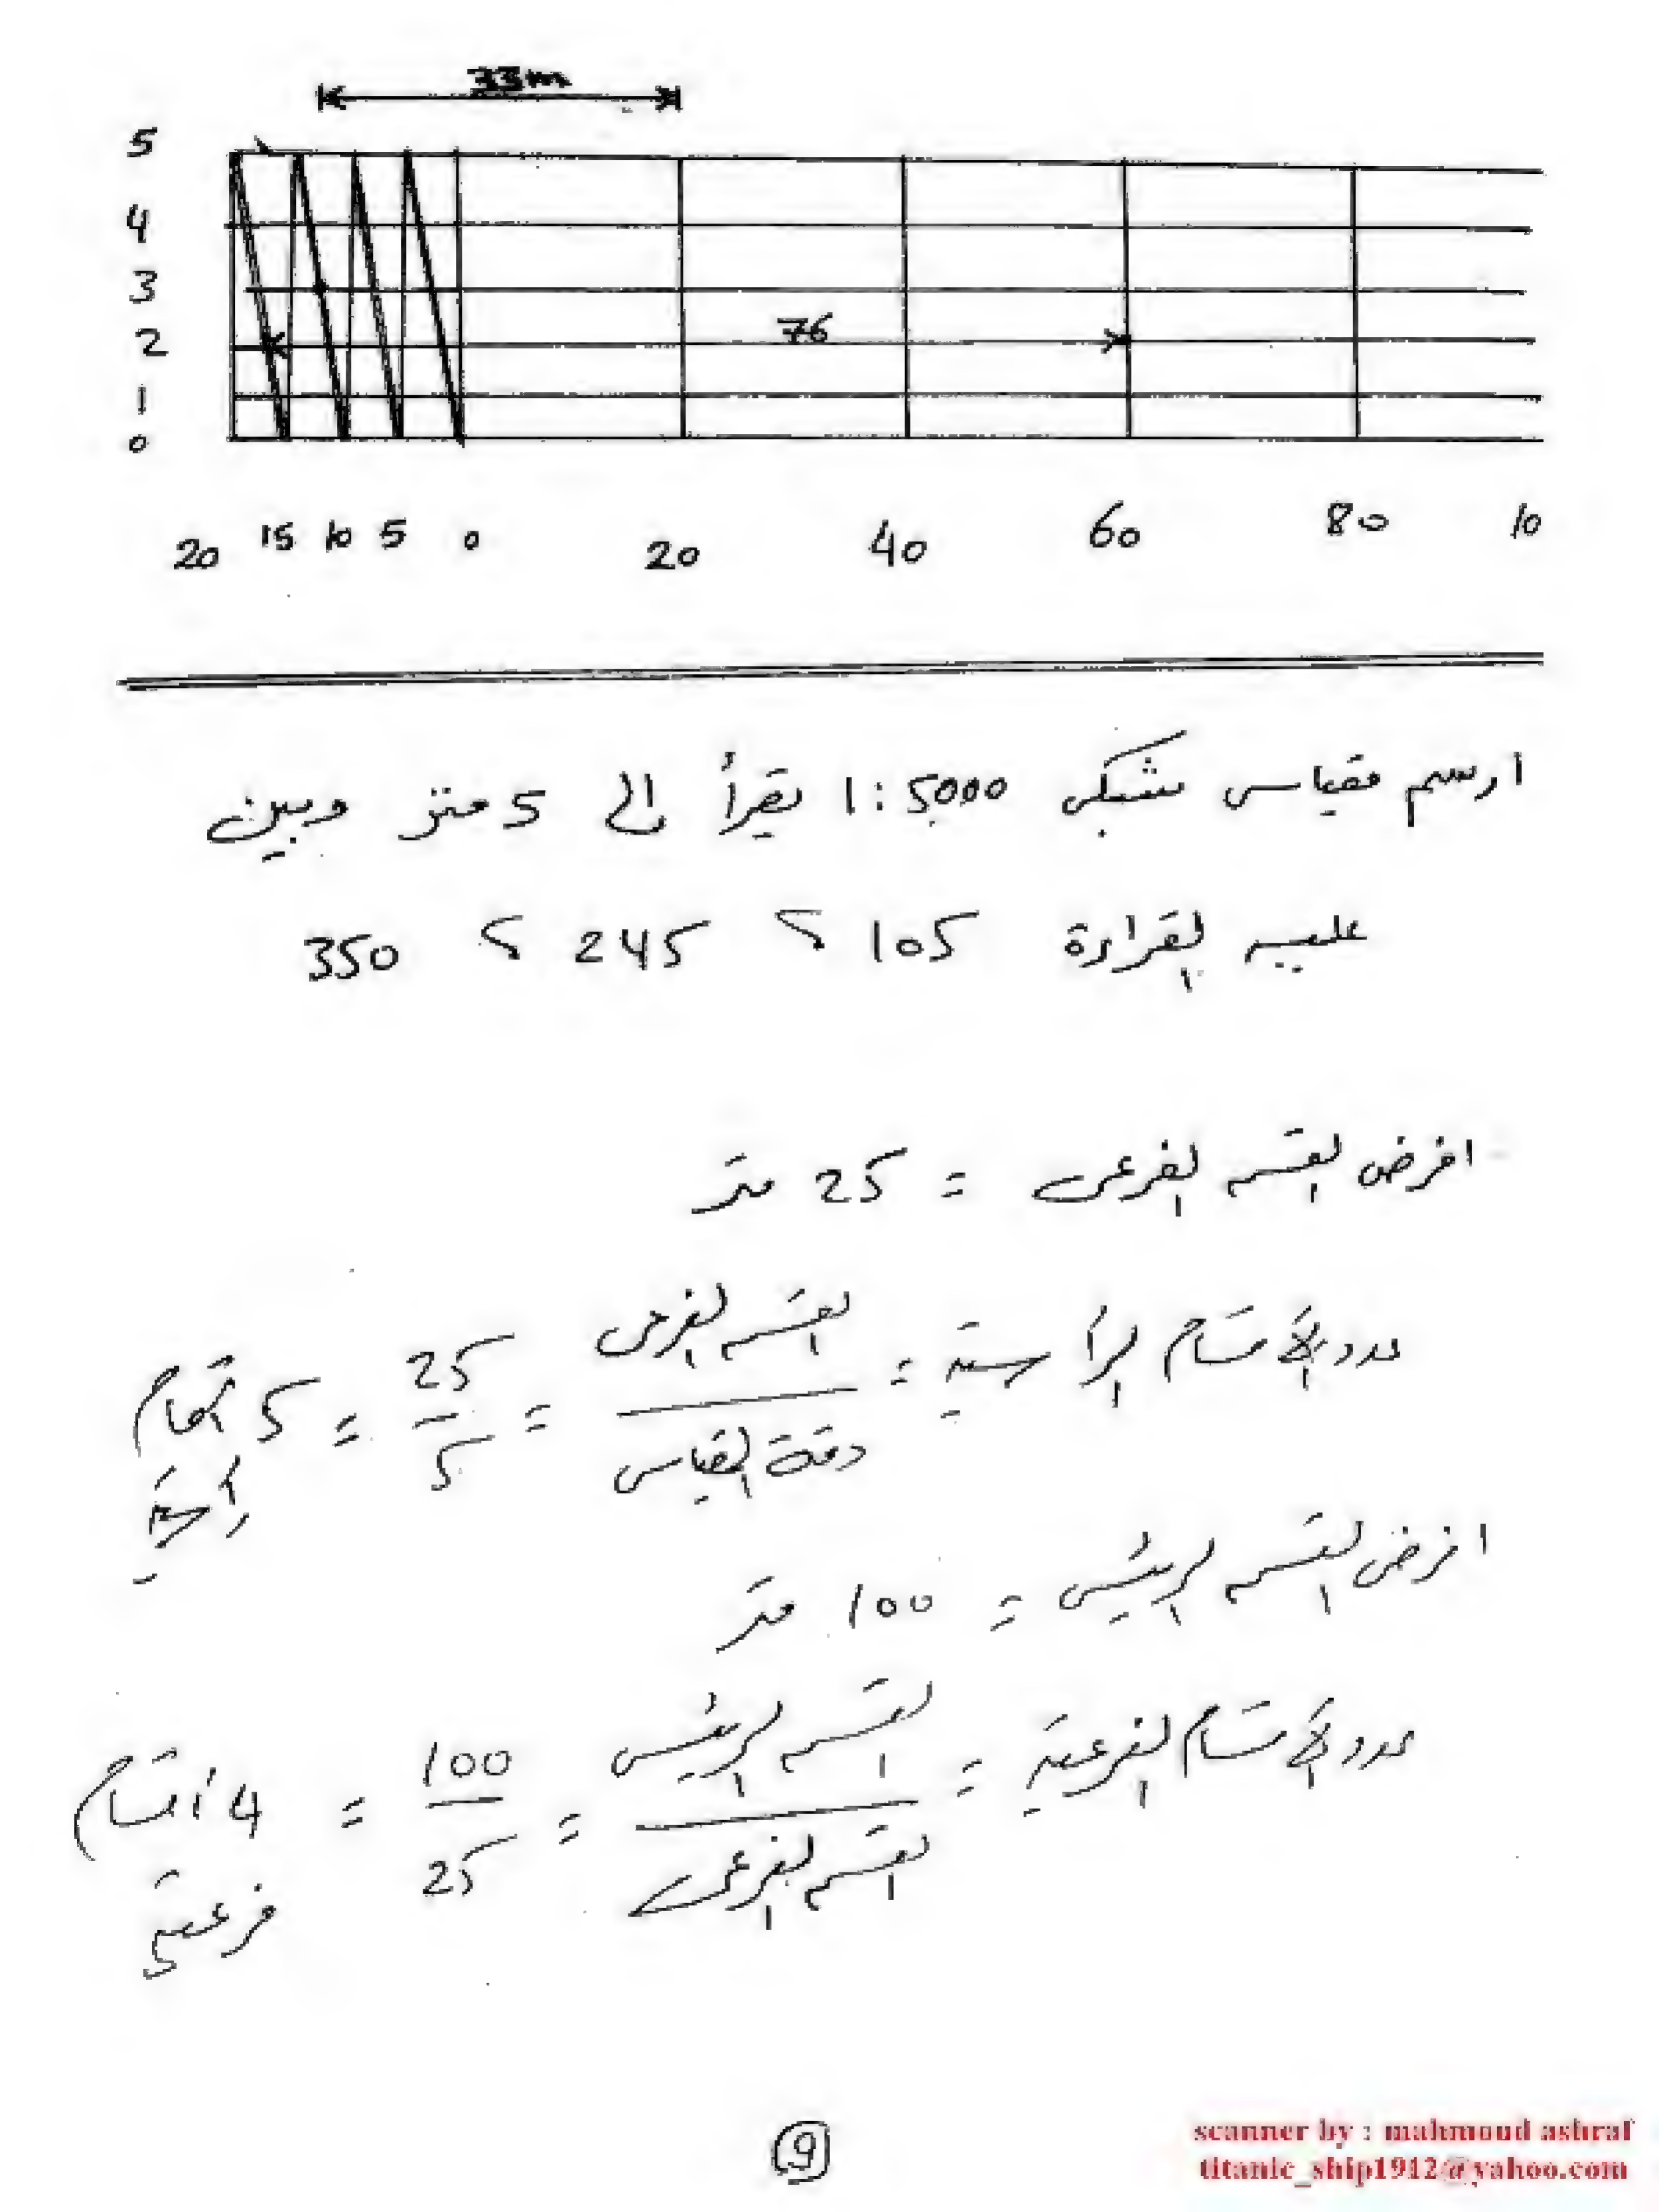 33m
5
4
3
76
2
1
0
20 15 10 5 0 20 40 60 80 10
ارسم مقياس شبكى 5000 : 1 يقرأ الى 5 متر وبين
عليه القراءة 105 ، 245 ، 350
افرض القسم الفرعى = 25 متر
عدد الأقسام الرأسية = القسم الفرعى / دقة المقياس = 25 / 5 = 5 أقسام رأسية
افرض القسم الرئيسى = 100 متر
عدد الأقسام الفرعية = القسم الرئيسى / القسم الفرعى = 100 / 25 = 4 أقسام فرعية
9
scanner by : mahmoud ashraf
titanic_ship1912@yahoo.com